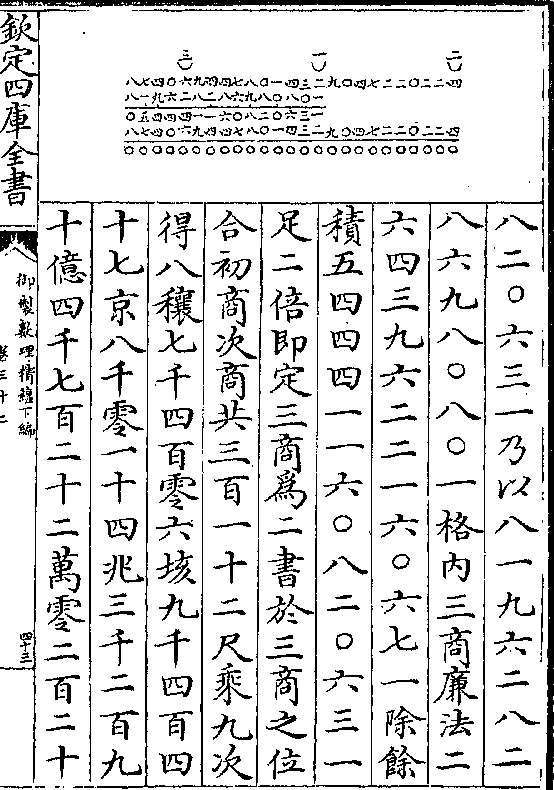 三　一　二
八七四〇六九四四七八〇一四三二九〇四七二二〇二二四
八一九六二八二八六九八〇八〇一
〇五四四四一一六〇八二〇六三一
八七四〇六九四四七八〇一四三二九〇四七二二〇二二四
〇〇〇〇〇〇〇〇〇〇〇〇〇〇〇〇〇〇〇〇〇〇〇〇〇
八二〇六三一乃以八一九六二八二
八六九八〇八〇一格内三商廉法二
六四三九六二二一六〇六七一除餘
積五四四四一一六〇八二〇六三一
足二倍即定三商爲二書於三商之位
合初商次商共三百一十二尺乘九次
得八穰七千四百零六垓九千四百四
十七京八千零一十四兆三千二百九
十億四千七百二十二萬零二百二十
欽定四庫全書
御製數理精蘊下編
卷三十二
四十三